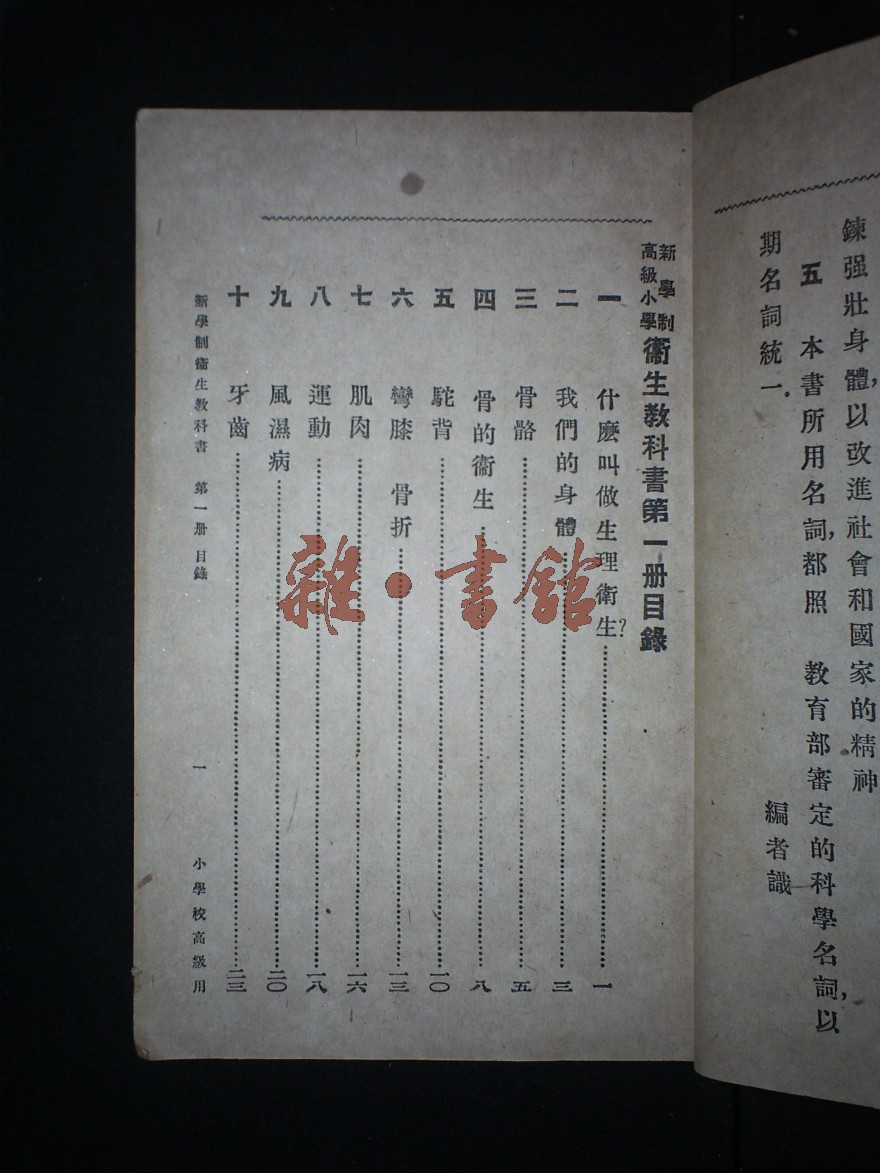 鍊强壯身體,以改進社會和國家的精神
五 本書所用名詞,都照 教育部審定的科學名詞,以
期名詞統一.
編者識
新學制
高級小學
衞生教科書第一册目錄
一 什麼叫做生理衞生?…一
二 我們的身體…三
三 骨骼…五
四 骨的衞生…八
五 駝背…一〇
六 彎膝 骨折…一三
七 肌肉…一六
八 運動…一八
九 風濕病…二〇
十 牙齒…二三
新學制衞生教科書 第一册 目錄 一 小學校高級用
雜·書館